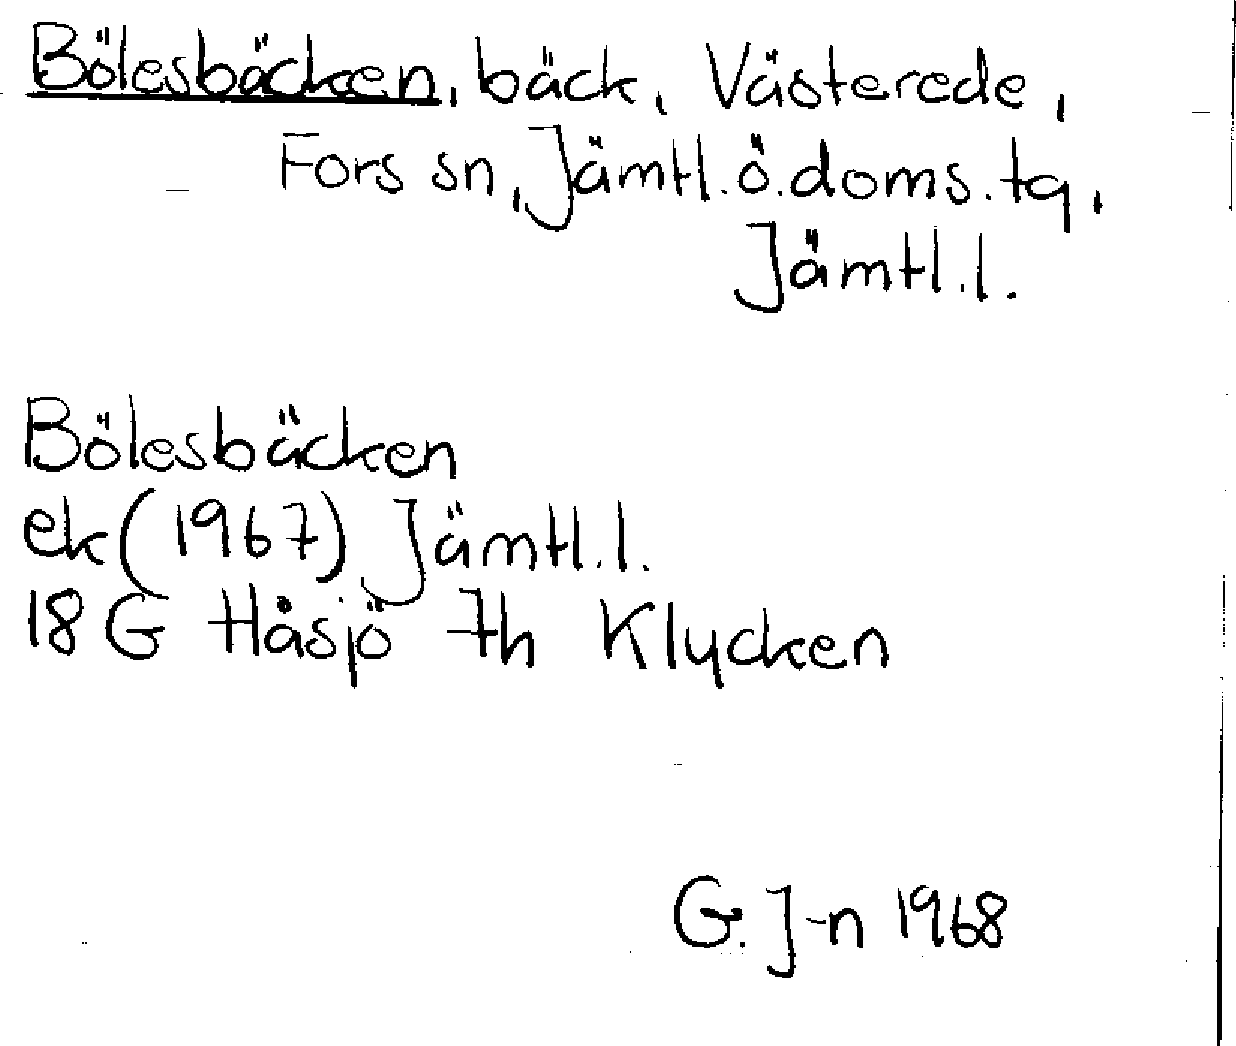 Bölesbäcken, bäck, Västerede,
Fors sn, Jämtl.ö.doms.tg,
Jämtl.l.
Bölesbäcken
ek(1967) Jämtl.l.
18G Håsjö 7h Klycken
G. J-n 1968